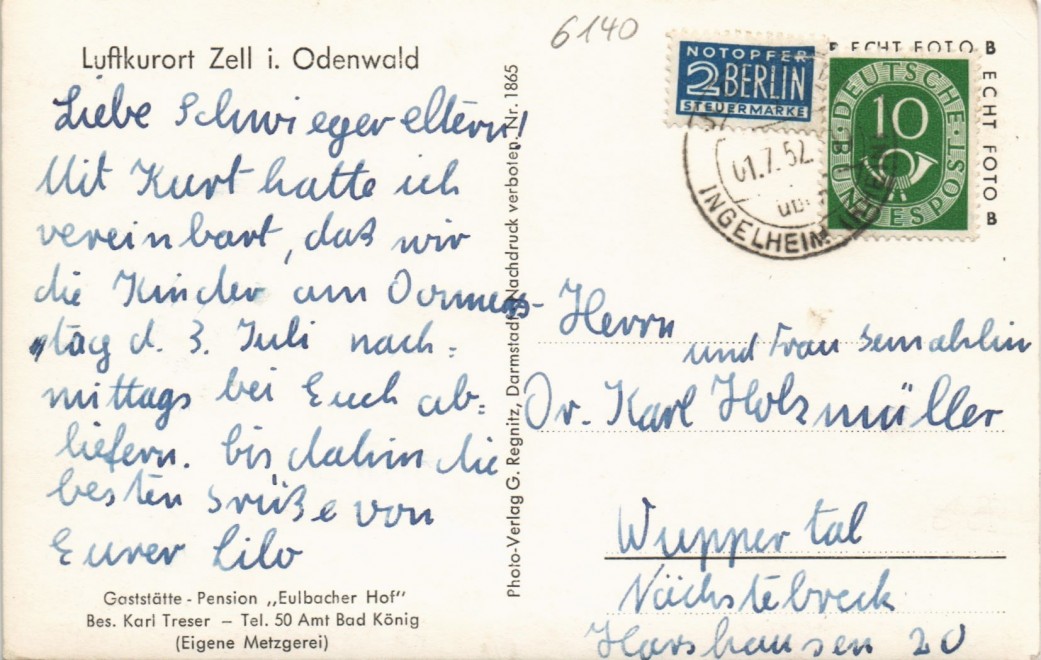 6140
Luftkurort Zell i. Odenwald
Liebe Schwiegereltern!
Mit Kurt hatte ich
vereinbart, daß wir
die Kinder am Donners-
tag d. 3. Juli nach=
mittags bei Euch ab=
liefern. bis dahin die
besten Grüße von
Eurer Lilo
Gaststätte - Pension „Eulbacher Hof"
Bes. Karl Treser – Tel. 50 Amt Bad König
(Eigene Metzgerei)
Photo-Verlag G. Regnitz, Darmstadt. Nachdruck verboten. Nr. 1865
NOTOPFER
2 BERLIN
STEUERMARKE
ECHT FOTO B
ECHT FOTO B
DEUTSCHE
BUNDESPOST
10
01.7.52.
INGELHEIM
Herrn
und Frau Gemahlin
Dr. Karl Holzmüller
Wuppertal
Nächstebreck
20